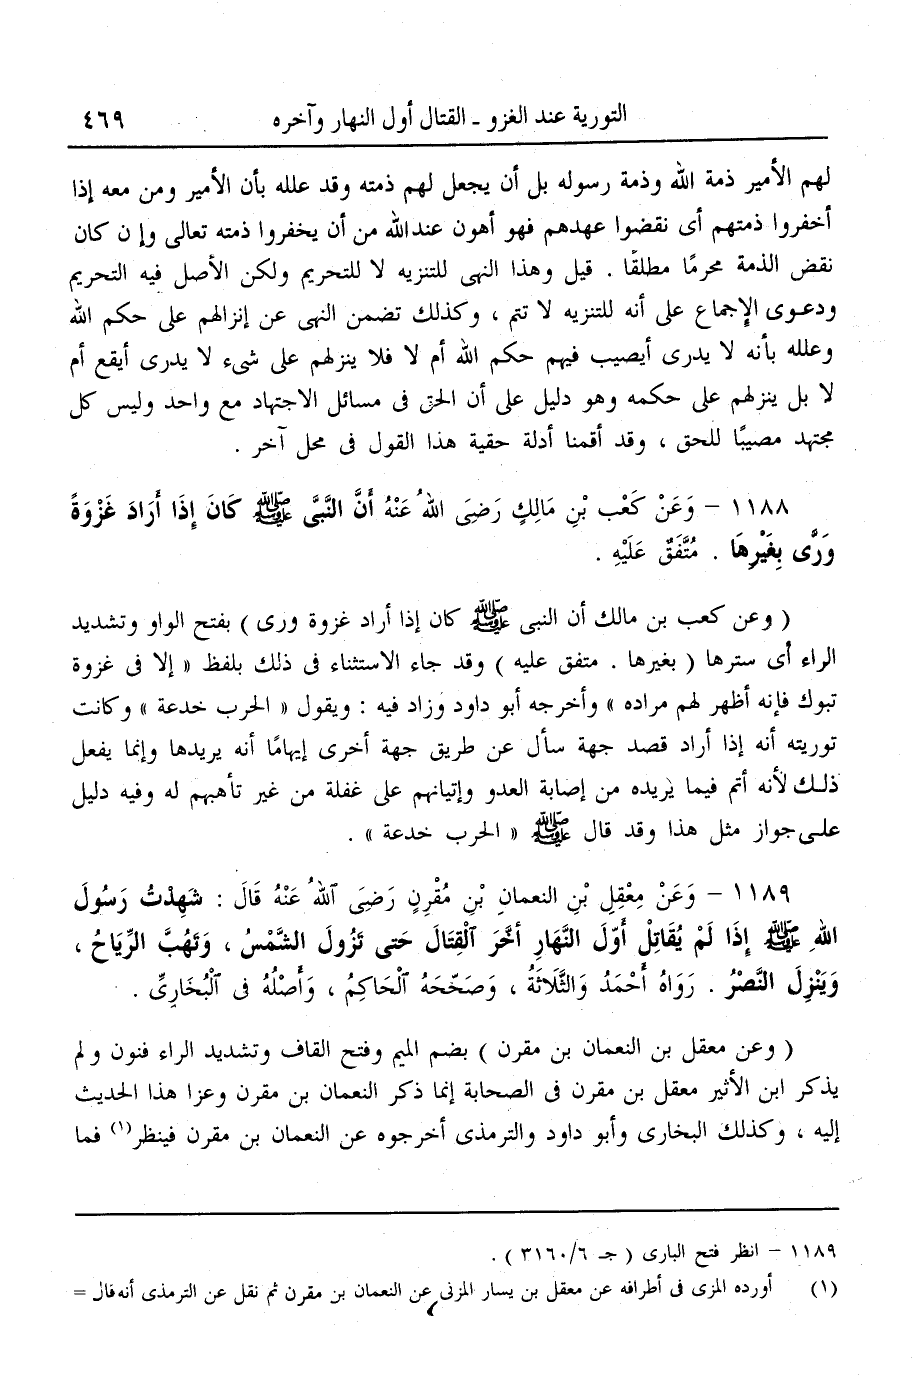 التورية عند الغزو ـ القتال أول النهار وآخره ٤٦٩
لهم الأمير ذمة الله وذمة رسوله بل أن يجعل لهم ذمته وقد علله بأن الأمير ومن معه إذا
أخفروا ذمتهم أى نقضوا عهدهم فهو أهون عند الله من أن يخفروا ذمته تعالى وإن كان
نقض الذمة محرمًا مطلقًا . قيل وهذا النهى للتنزيه لا للتحريم ولكن الأصل فيه التحريم
ودعوى الإجماع على أنه للتنزيه لا تتم ، وكذلك تضمن النهى عن إنزالهم على حكم الله
وعلله بأنه لا يدرى أيصيب فيهم حكم الله أم لا فلا ينزلهم على شىء لا يدرى أيقع أم
لا بل ينزلهم على حكمه وهو دليل على أن الحق فى مسائل الاجتهاد مع واحد وليس كل
مجتهد مصيبًا للحق ، وقد أقمنا أدلة حقية هذا القول فى محل آخر .
١١٨٨ – وَعَنْ كَعْبِ بْنِ مَالِكٍ رَضِىَ اللهُ عَنْهُ أَنَّ النَّبِىَّ ﷺ كَانَ إِذَا أَرَادَ غَزْوَةً
وَرَّى بِغَيْرِهَا . مُتَّفَقٌ عَلَيْهِ .
( وعن كعب بن مالك أن النبى ﷺ كان إذا أراد غزوة ورى ) بفتح الواو وتشديد
الراء أى سترها ( بغيرها . متفق عليه ) وقد جاء الاستثناء فى ذلك بلفظ « إلا فى غزوة
تبوك فإنه أظهر لهم مراده » وأخرجه أبو داود وزاد فيه : ويقول « الحرب خدعة » وكانت
توريته أنه إذا أراد قصد جهة سأل عن طريق جهة أخرى إيهامًا أنه يريدها وإنما يفعل
ذلك لأنه أتم فيما يريده من إصابة العدو وإتيانهم على غفلة من غير تأهبهم له وفيه دليل
على جواز مثل هذا وقد قال ﷺ « الحرب خدعة » .
١١٨٩ – وَعَنْ مِعْقِلِ بْنِ النعمانِ بْنِ مُقْرِنٍ رَضِىَ اللهُ عَنْهُ قَالَ : شَهِدْتُ رَسُولَ
اللهِ ﷺ إِذَا لَمْ يُقَاتِلْ أَوَّلَ النَّهَارِ أَخَّرَ الْقِتَالَ حَتى تَزُولَ الشَّمْسُ ، وَتَهُبَّ الرِّيَاحُ ،
وَيَنْزِلَ النَّصْرُ . رَوَاهُ أَحْمَدُ وَالثَّلَاثَةُ ، وَصَحَّحَهُ الْحَاكِمُ ، وَأَصْلُهُ فى الْبُخَارِىِّ .
( وعن معقل بن النعمان بن مقرن ) بضم الميم وفتح القاف وتشديد الراء فنون ولم
يذكر ابن الأثير معقل بن مقرن فى الصحابة إنما ذكر النعمان بن مقرن وعزا هذا الحديث
إليه ، وكذلك البخارى وأبو داود والترمذى أخرجوه عن النعمان بن مقرن فينظر(١) فما
١١٨٩ – انظر فتح البارى ( جـ ٣١٦٠/٦ ) .
(١) أورده المزى فى أطرافه عن معقل بن يسار المزنى عن النعمان بن مقرن ثم نقل عن الترمذى أنه قال =